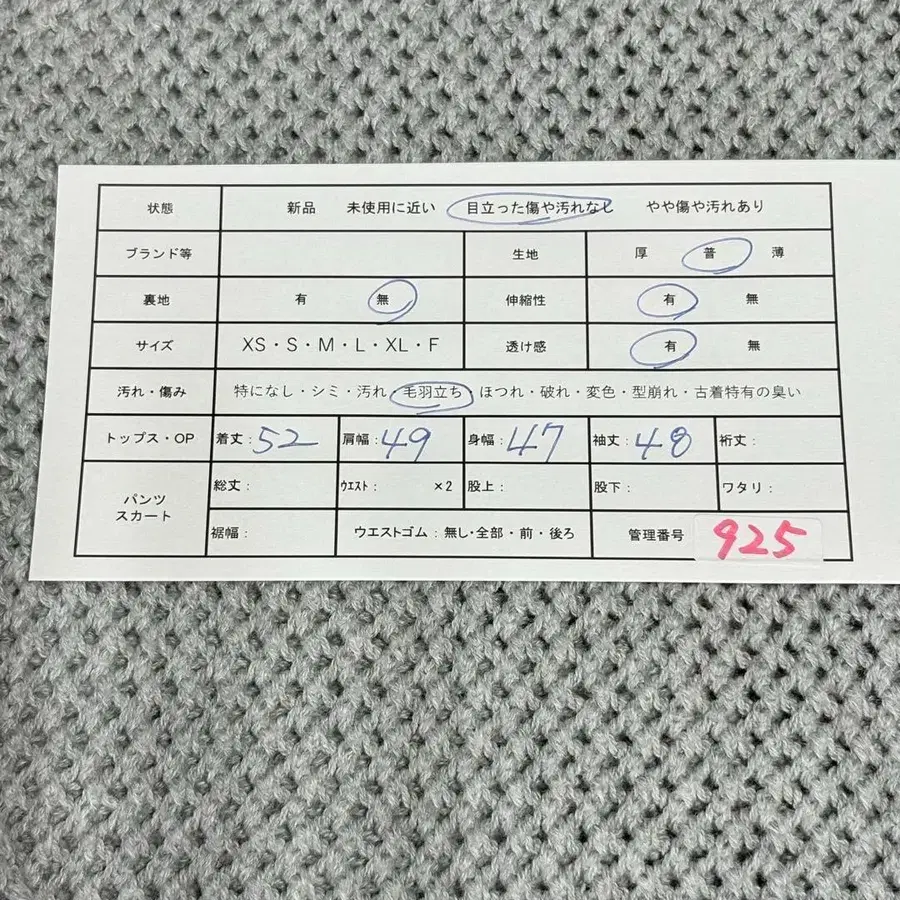 状態 新品 未使用に近い 目立った傷や汚れなし やや傷や汚れあり
ブランド等 生地 厚 普 薄
裏地 有 無 伸縮性 有 無
サイズ XS・S・M・L・XL・F 透け感 有 無
汚れ・傷み 特になし・シミ・汚れ・毛羽立ち・ほつれ・破れ・変色・型崩れ・古着特有の臭い
トップス・OP 着丈:52 肩幅:49 身幅:47 袖丈:48 裄丈:
パンツ
スカート
総丈: ウエスト: ×2 股上: 股下: ワタリ:
裾幅: ウエストゴム:無し・全部・前・後ろ 管理番号 925